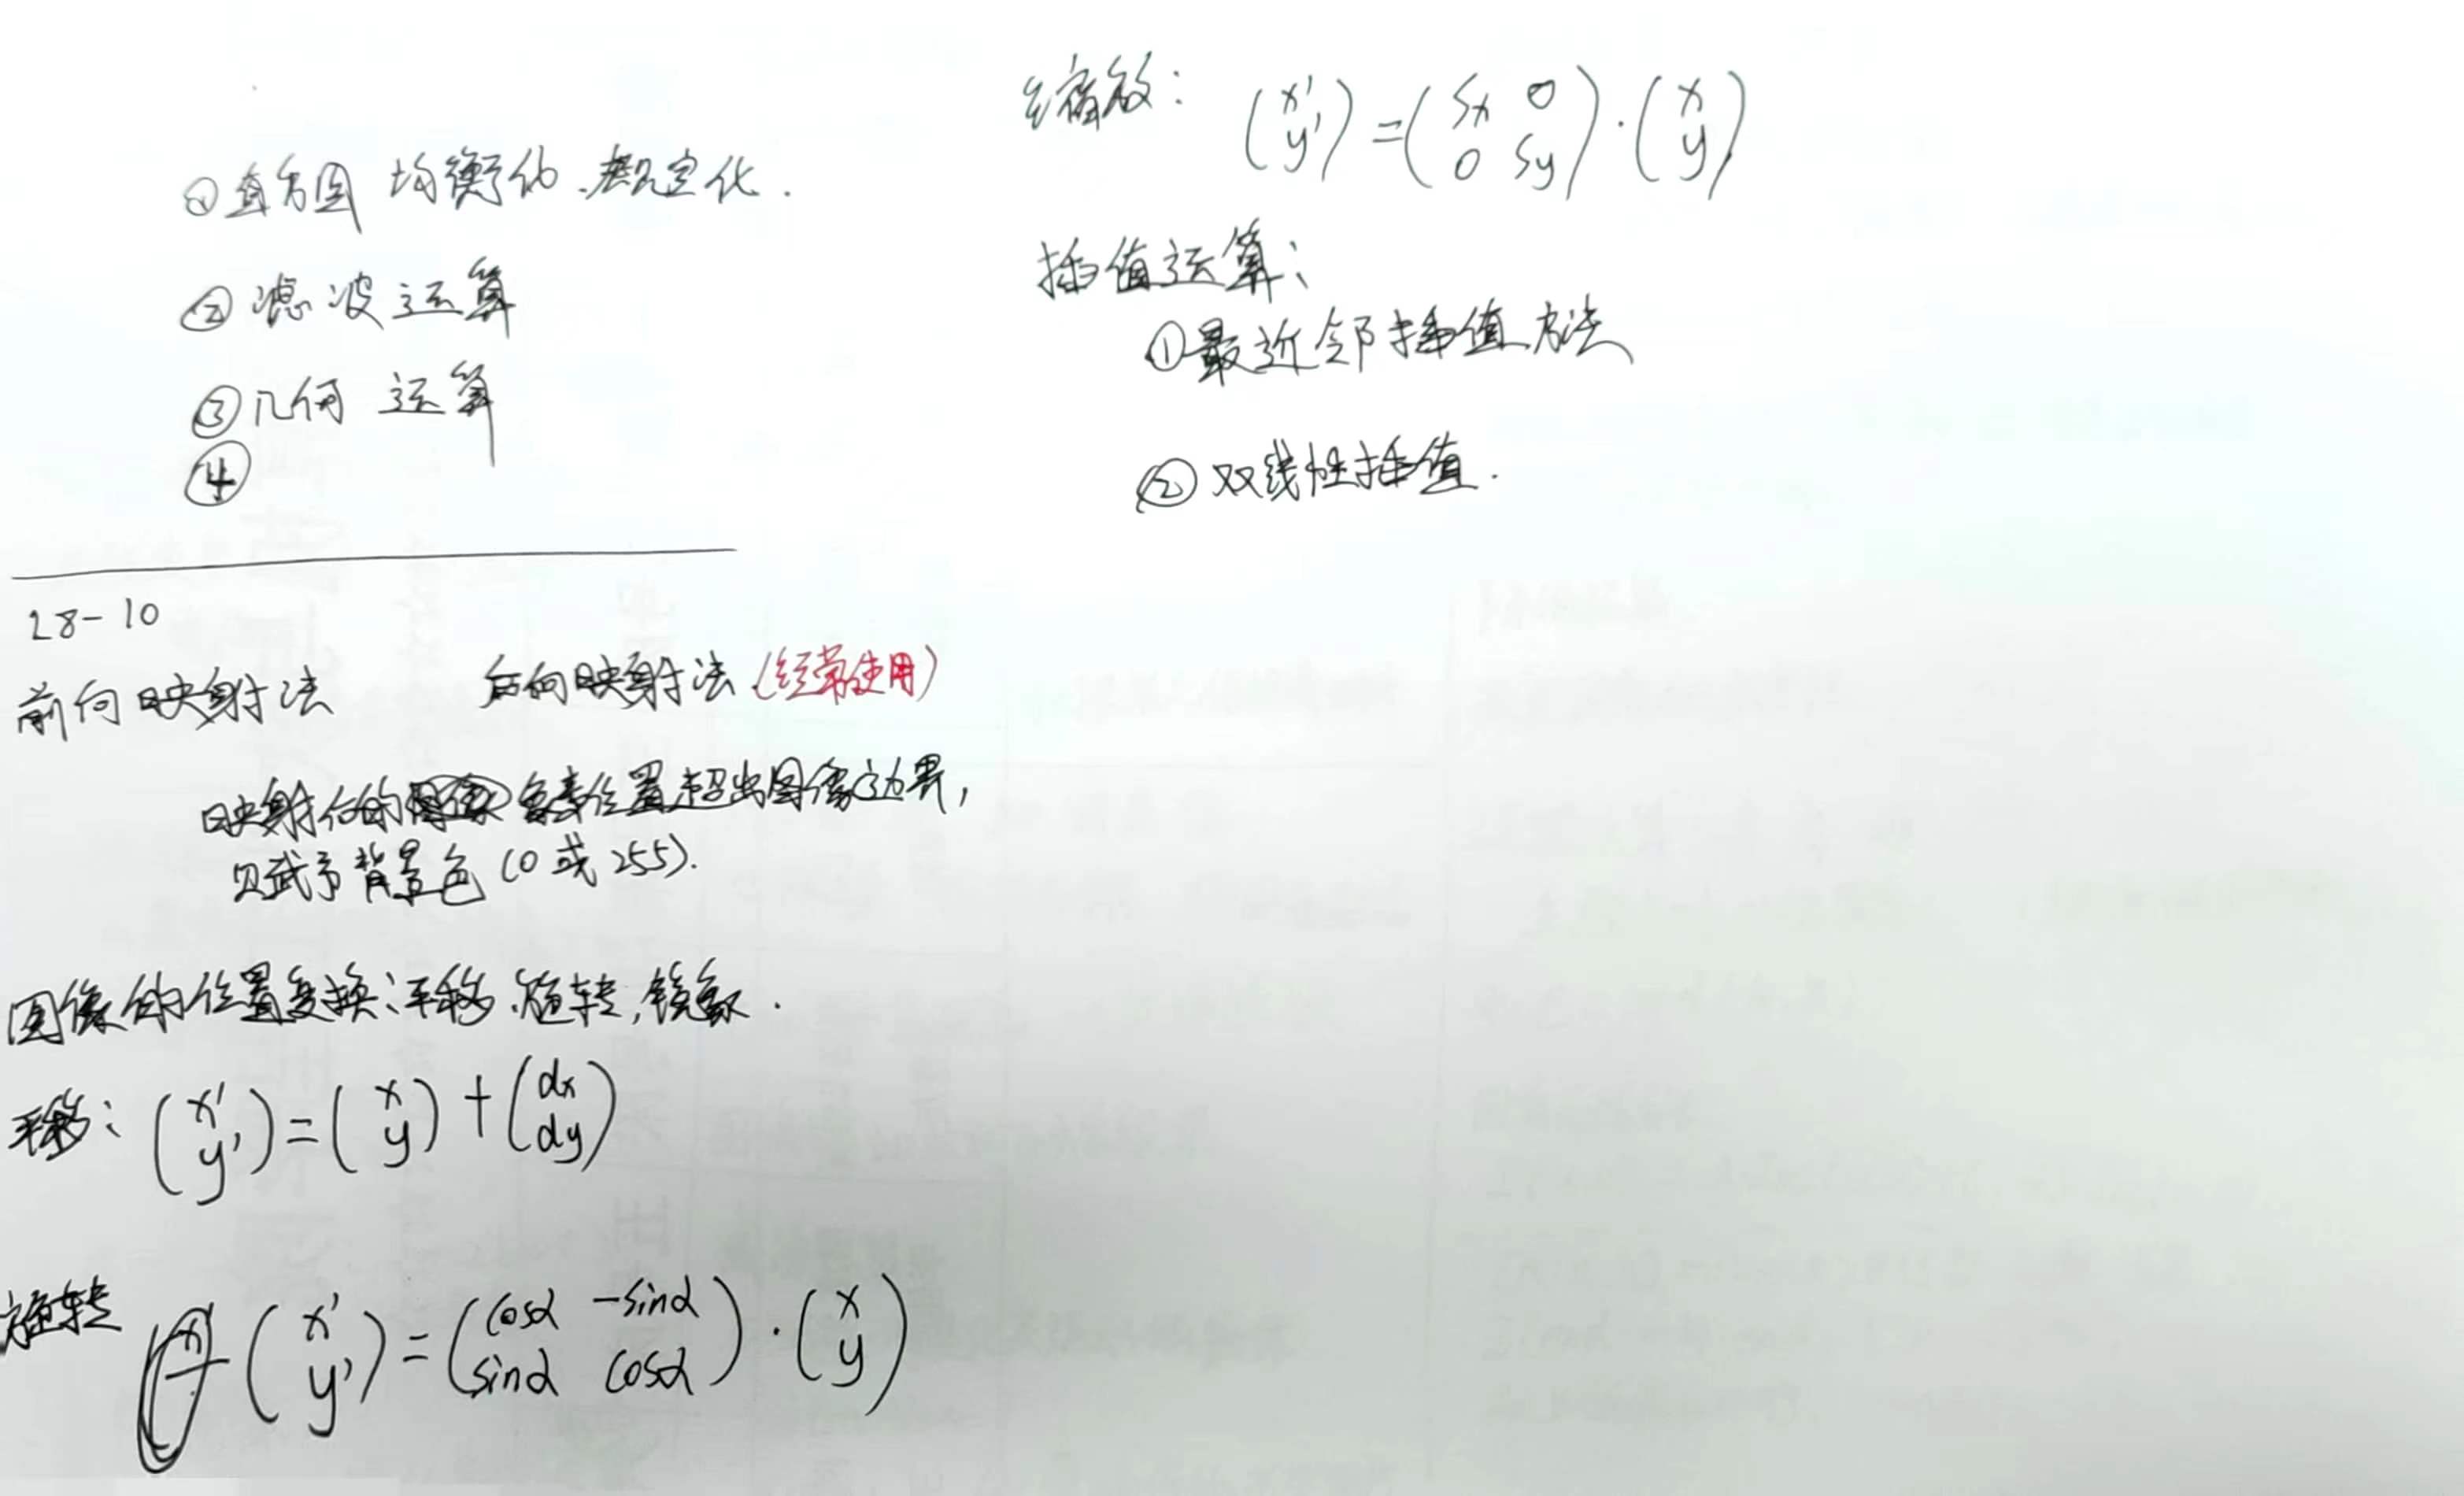 ①直方图 均衡化、规定化.
②滤波运算
③几何 运算
④
28-10
前向映射法 后向映射法 (经常使用)
映射后的像素位置超出图像边界,
则赋予背景色 (0 或 255).
图像的位置变换:平移、旋转,镜象.
平移: (x' y') = (x y) + (dx dy)
旋转 (x' y') = (cosα -sinα sinα cosα) · (x y)
缩放: (x' y') = (Sx 0 0 Sy) · (x y)
插值运算:
①最近邻插值方法
②双线性插值.